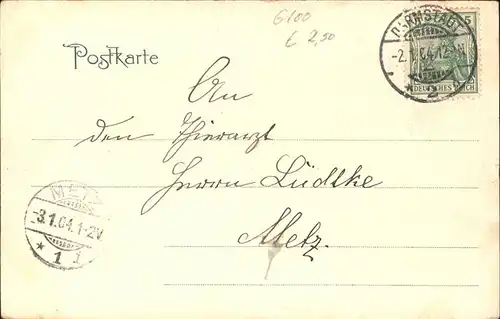 6100
€ 2,50
Postkarte
DARMSTADT
-2.1.04.12-
2
5
DEUTSCHES REICH
An
den Thierarzt
Herrn Lüdtke
Metz.
METZ
-3.1.04.1-2V
* 1 1